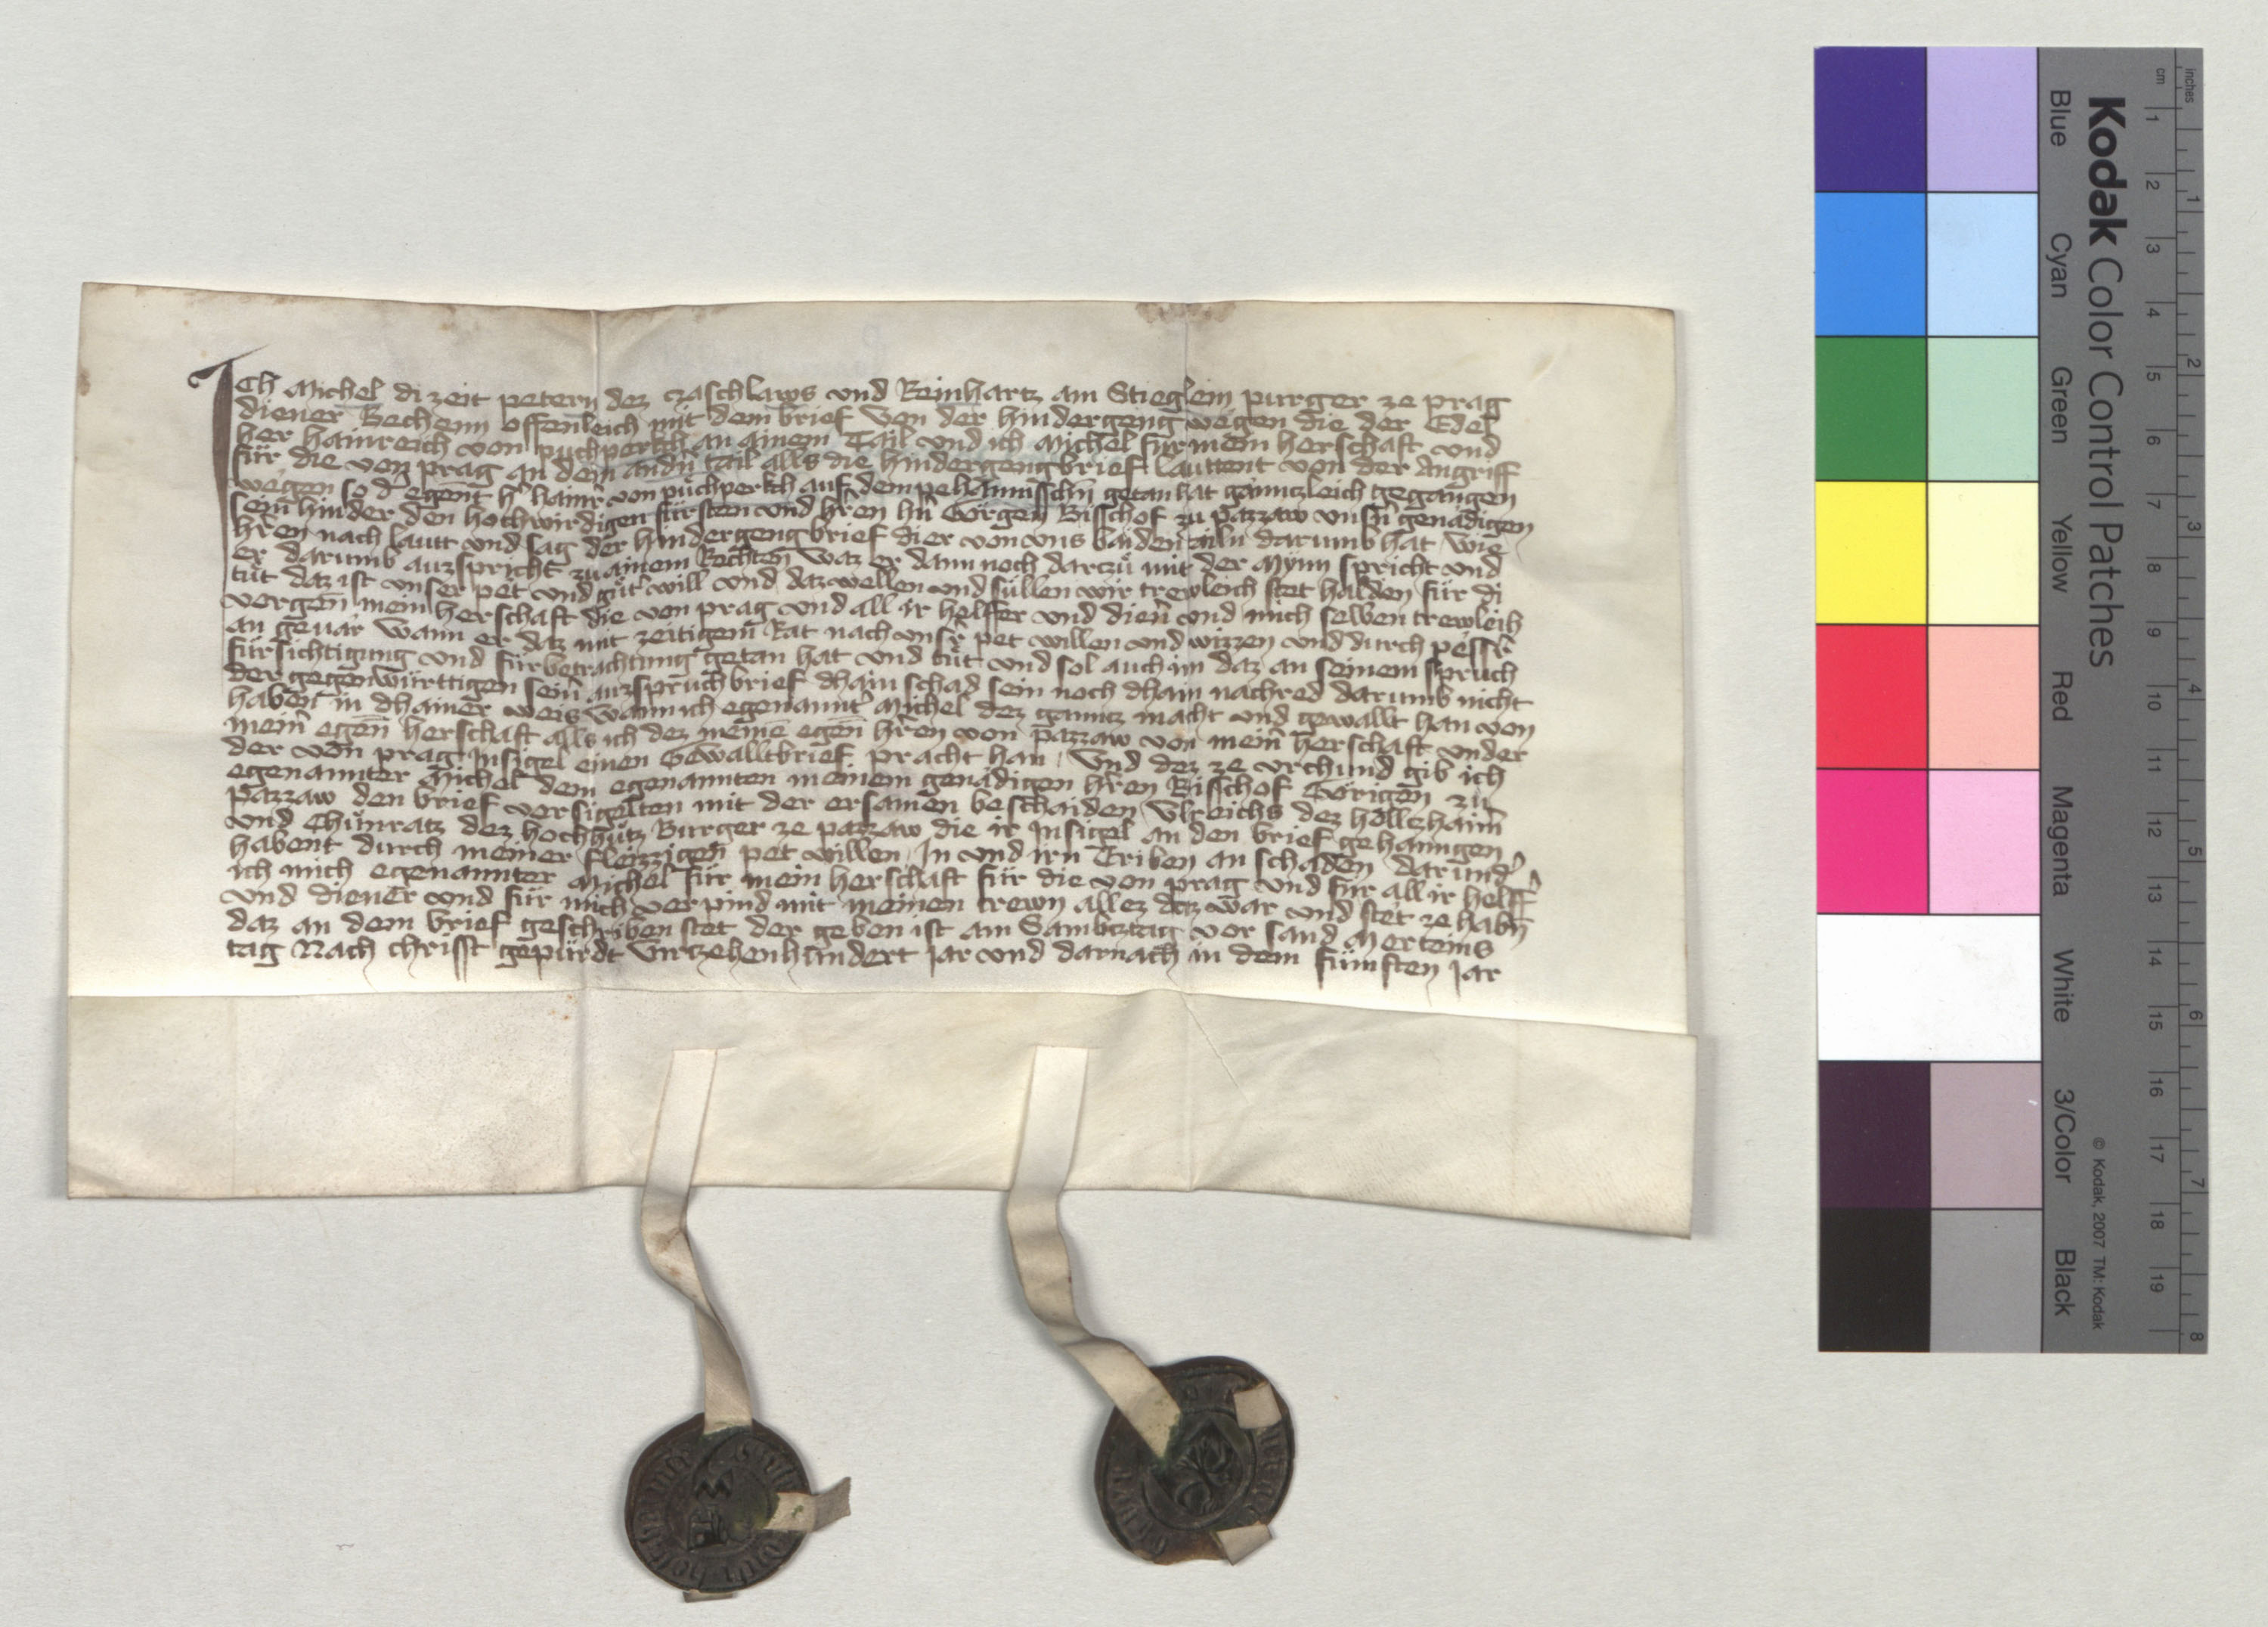 Ich Michel di zeit petern dez czaschlaws und Reinhartz am Stieglein purger ze prag
diener Bechenn offenleich mit dem brief Von der hindergeng wegen die der Edel
her hainreich von puchperkch an ainem Tail und ich Michel für mein herschaft und
für die von prag an dem andn̄ tail alls die hindergengbrief lauttent von der Angriff
wegen so d᷑ egen̄t h᷑ hainr̄ von püchperkch auf dem pehamisschn̄ getan hat gänntzleich gegangen
sein hinder den hochwirdigen fürsten und hr̄en hn̄ Görgen Bisschof zu pazzaw unsn̄ genädigen
hr̄en nach lautt und sag der hindergengbrief dier von uns baiden tailn darumb hat wie
er darumb auzspricht zu ainem Rechten waz er dann noch dartzů mit der Mynn spricht und
tůt daz ist unser pet und gůt will und daz wellen und süllen wir trewleich stet halden für di
vorgen̄ mein herschaft die von prag und all ir helffer und dien̄ und mich selben trewleih
an geuär Wann er daz mit zeitigem Rat nach uns᷑r pet willen und wizzen und durch pess᷑r
fürsichtigung und fürbetrachtung getan hat und tůt und sol auch im daz an seinem spruch
der gegenwürttigen sein̄ auzspruchbrief dhain schad sein noch dhain nachred darumb nicht
haben in dhainer weis wann ich egenannt᷑ Michel dez gantz macht und gewallt han von
mein̄ egen̄ herschaft alls ich dez meinē egen̄ hr̄en von pazzaw von mein̄ herschaft under
der von prag Insigel einen Gewalltbrief pracht han Und dez ze urchund gib ich
egenannter Michel dem egenannten meinem genädigen hr̄en Bisschof Görigen zu
pazzaw den brief versigelten mit der ersamen beschaiden Ulreichs dez höllezhaim̄
und Chůnratz dez hochhütz Burger ze pazzaw die ir Insigel an den brief gehanngen
habent durch meiner fleizzigen pet willen In und irn Eriben an schaden darund᷑
ich mich egenannter Michel für mein herschaft für die von prag und für all ir helff᷑
und diener und für mich verpind mit meinen trewn allez daz war und stet ze habn̄
daz an dem brief geschriben stet der geben ist am Sambtztag vor sand Merteins
tag Nach christ gepürdt virtzehenhundert Jar und darnach in dem fünften Jar
Kodak Color Control Patches
Blue Cyan Green Yellow Red Magenta White 3/Color Black
© Kodak, 2007 TM: Kodak
cm 1 2 3 4 5 6 7 8 9 10 11 12 13 14 15 16 17 18 19
inches 1 2 3 4 5 6 7 8